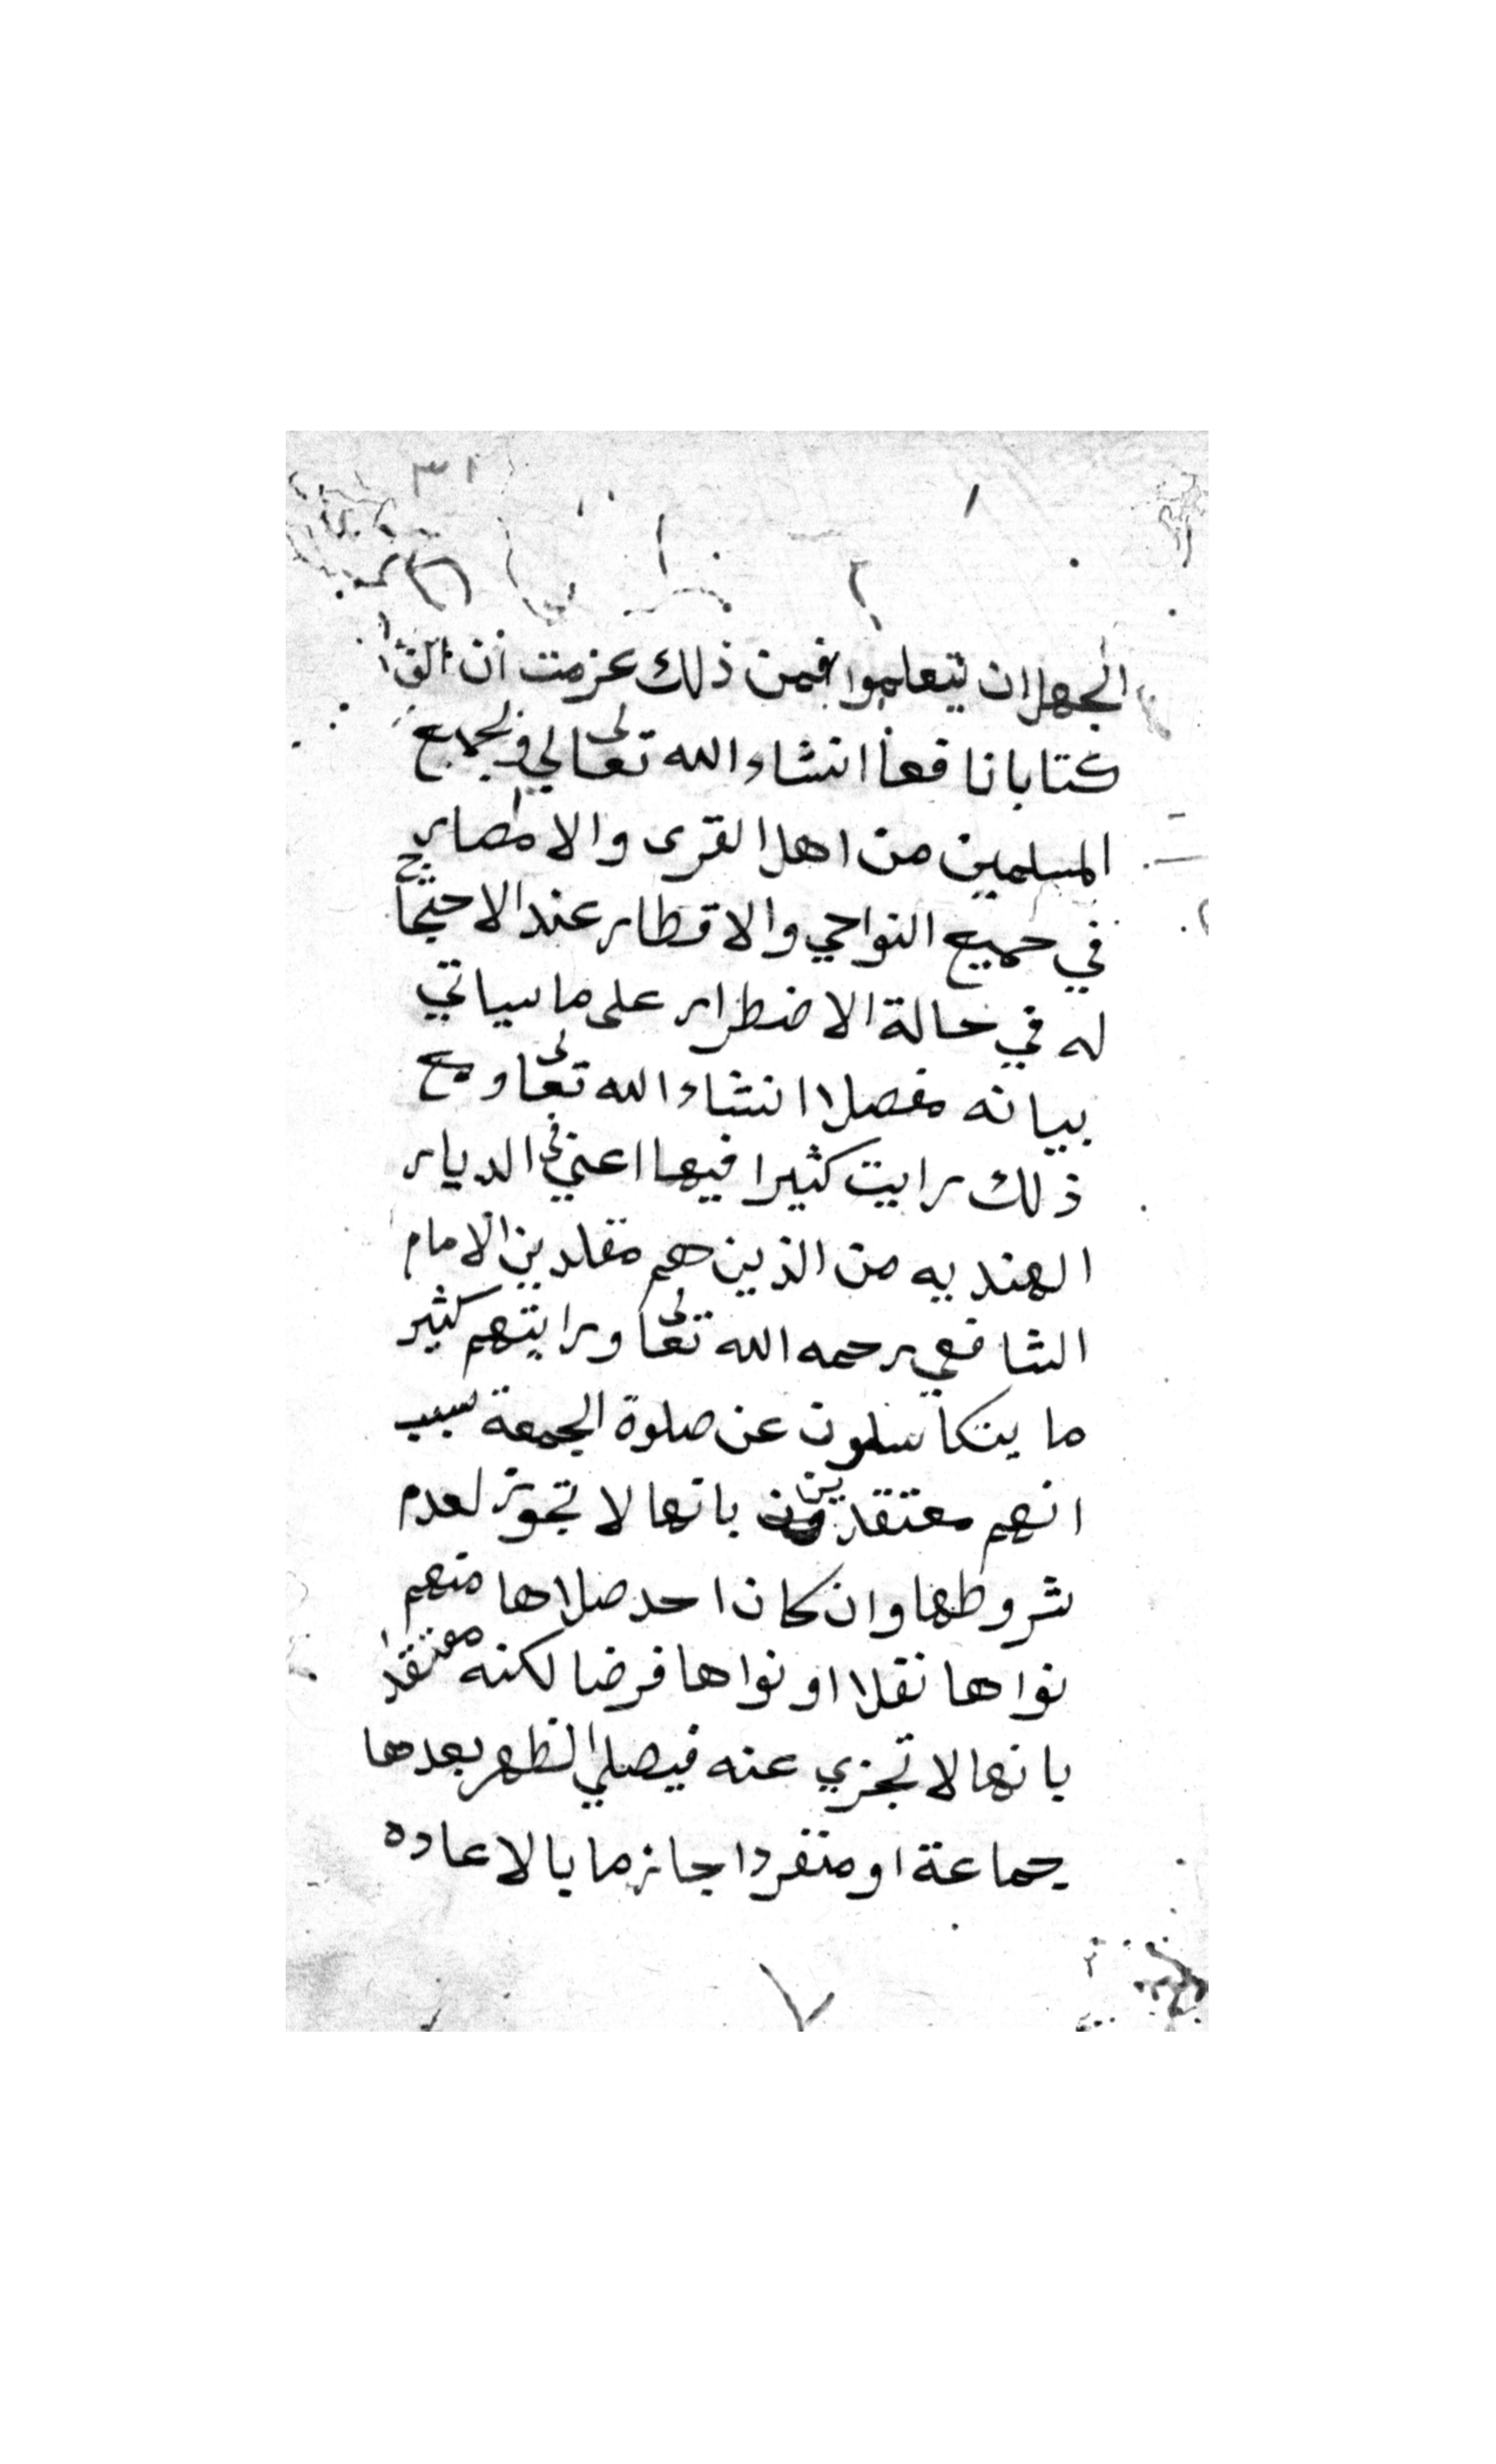 ٣١
الجهل ان يتعلموا فمن ذلك عزمت أن الف
كتابا نافعا انشاء الله تعالي لجميع
المسلمين من اهل القرى والامصار
في جميع النواحي والاقطار عند الاحتياج
له في حالة الاضطرار على ما سياتي
بيانه مفصلا انشاء الله تعالى ومع
ذلك رايت كثيرا فيها اعني في الديار
الهنديه من الذين هم مقلدين الامام
الشافعي رحمه الله تعالى ورايتهم كثير
ما يتكاسلون عن صلوة الجمعة بسبب
انهم معتقدين بانها لا تجوز لعدم
شروطها وان كان احد صلاها منهم
نواها نفلا او نواها فرضا لكنه معتقدا
بانها لا تجزي عنه فيصلي الظهر بعدها
جماعة او منفردا جازما بالاعاده